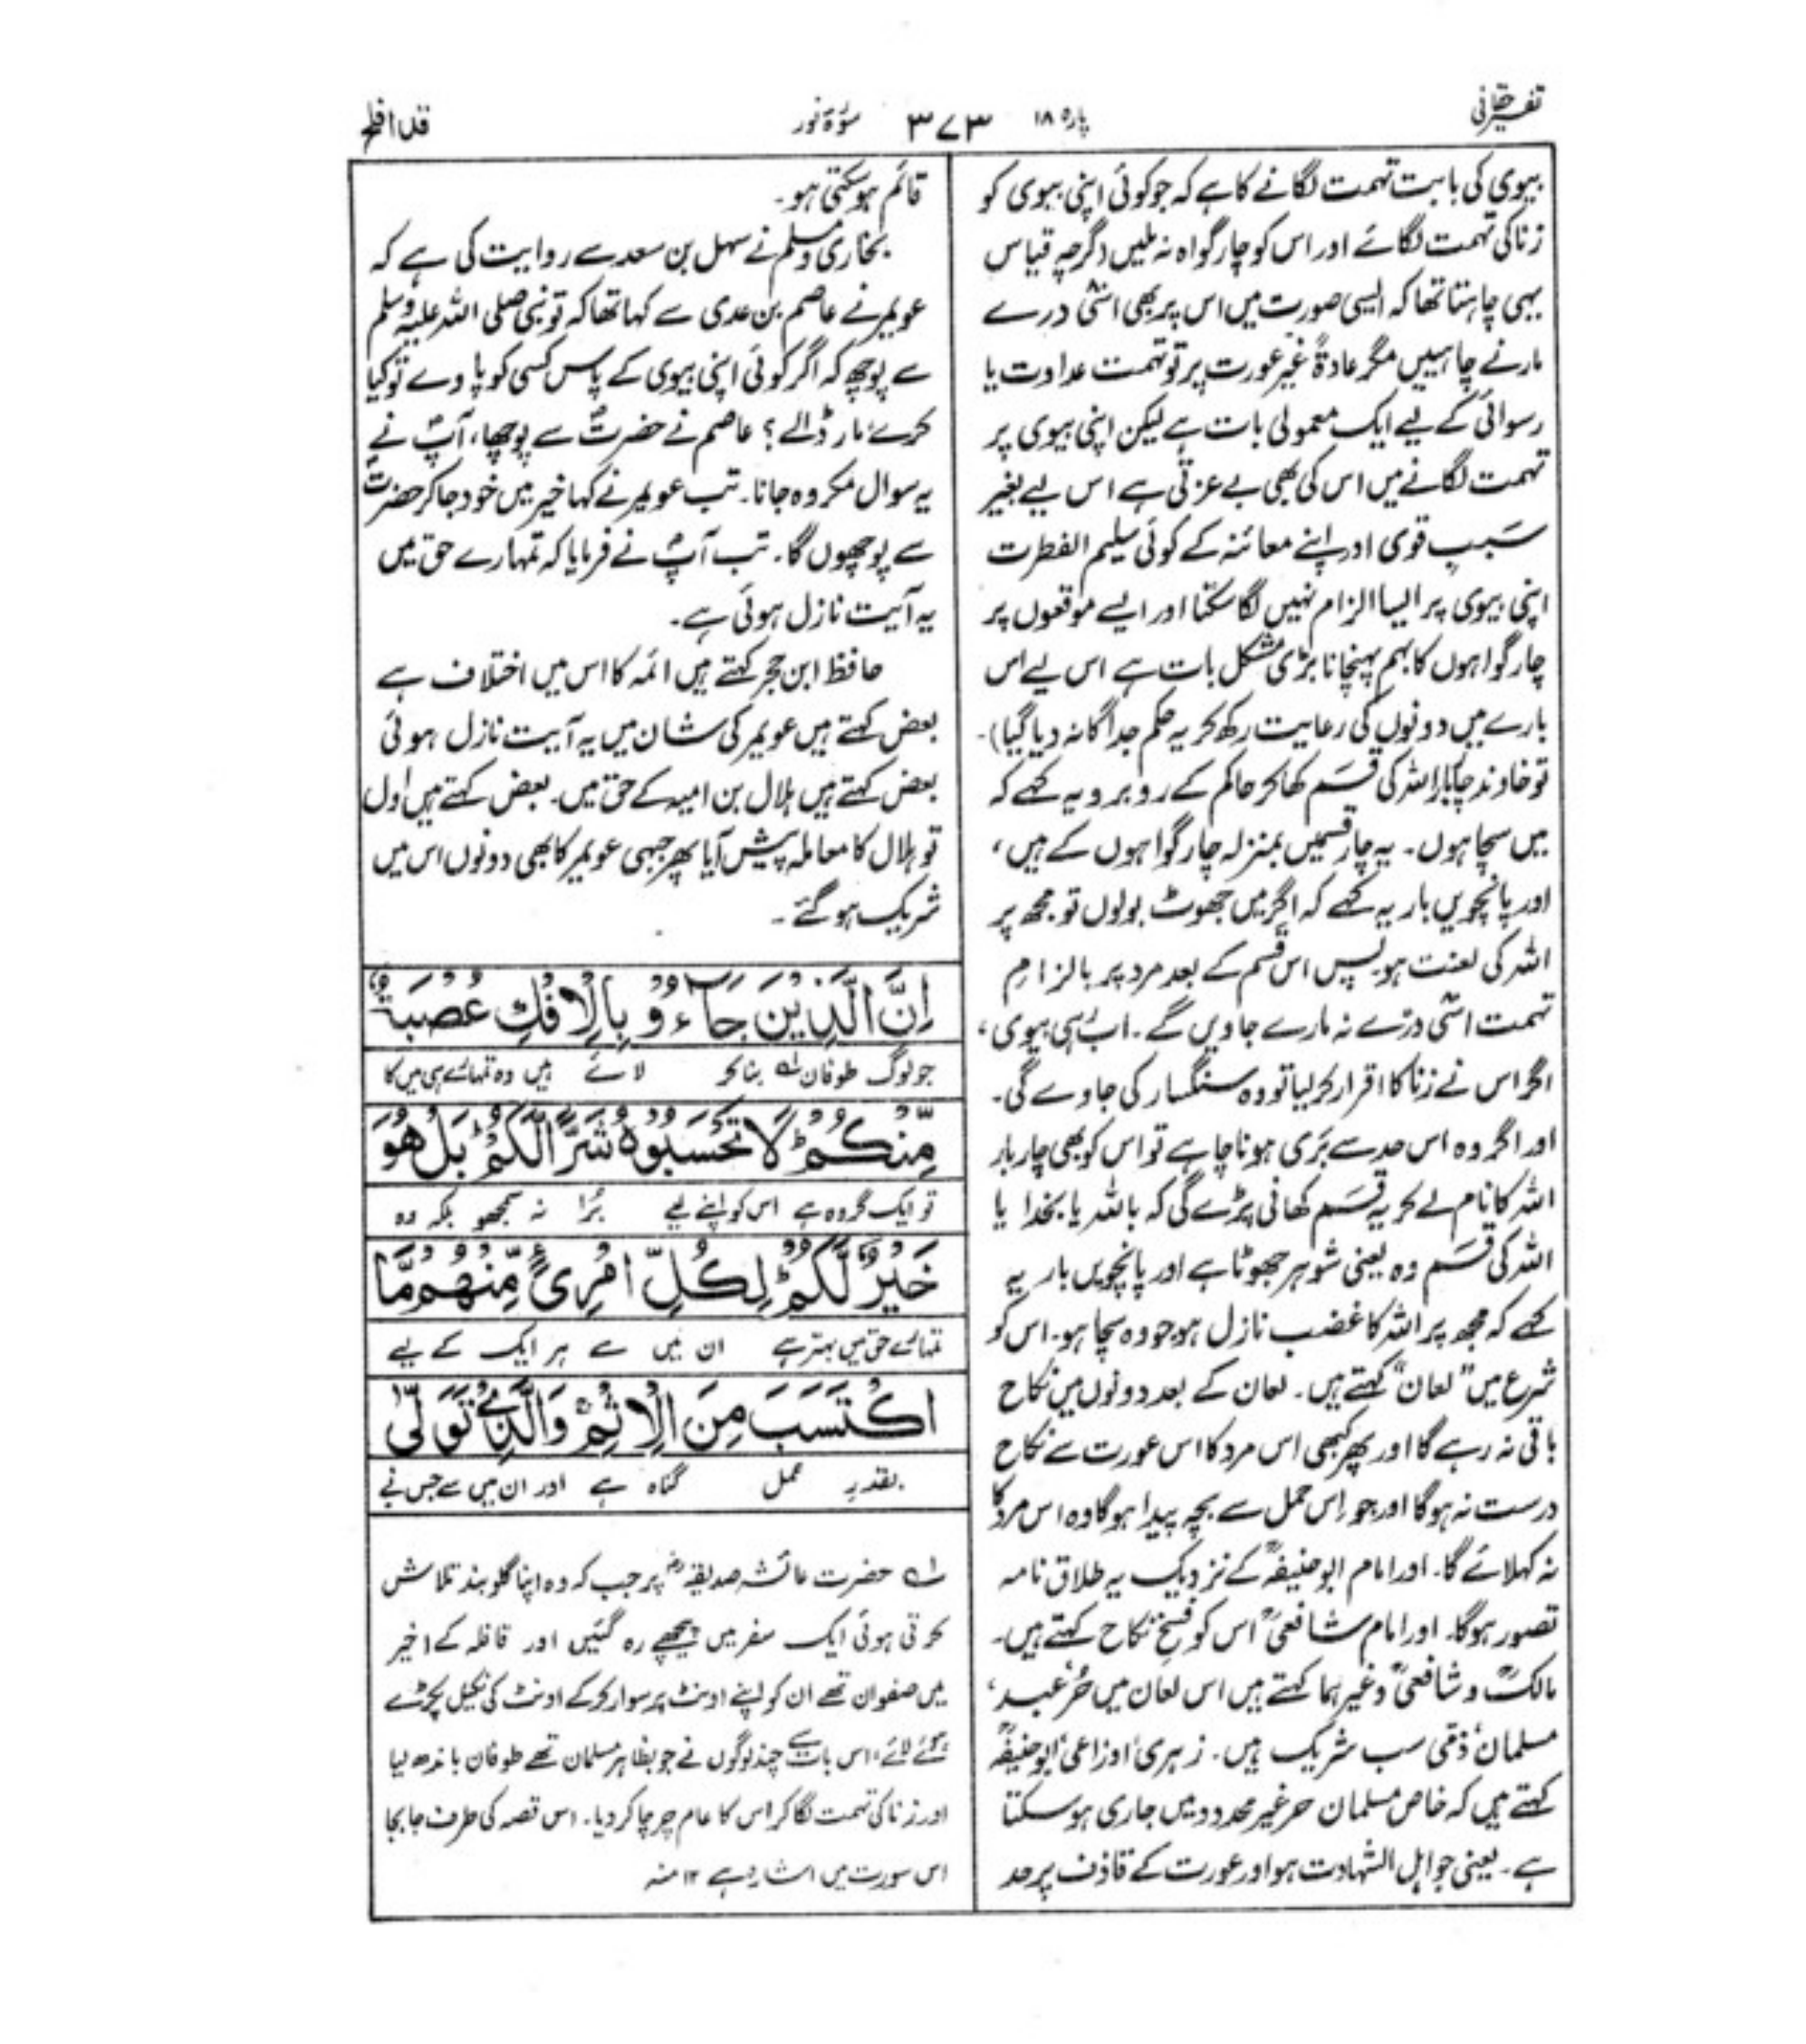 تفسیر حقانی
پارہ ۱۸
۳۷۳
سورۃ نور
قد افلح
بیوی کی بابت تہمت لگانے کا ہے کہ جو کوئی اپنی بیوی کو
زنا کی تہمت لگائے اور اس کو چار گواہ نہ ملیں (گرچہ قیاس
یہی چاہتا تھا کہ ایسی صورت میں اس پر بھی اسّی درے
مارنے چاہییں مگر عادۃً غیر عورت پر تو تہمت عداوت یا
رسوائی کے لیے ایک معمولی بات ہے لیکن اپنی بیوی پر
تہمت لگانے میں اس کی بھی بے عزتی ہے اس لیے بغیر
سبب قوی اور اپنے معائنہ کے کوئی سلیم الفطرت
اپنی بیوی پر ایسا الزام نہیں لگا سکتا اور ایسے موقعوں پر
چار گواہوں کا بہم پہنچانا بڑی مشکل بات ہے اس لیے اس
بارے میں دونوں کی رعایت رکھ کر یہ حکم جداگانہ دیا گیا)۔
تو خاوند چار بار اللہ کی قسم کھا کر حاکم کے روبرو یہ کہے کہ
میں سچا ہوں۔ یہ چار قسمیں بمنزلہ چار گواہوں کے ہیں،
اور پانچویں بار یہ کہے کہ اگر میں جھوٹ بولوں تو مجھ پر
اللہ کی لعنت ہو۔ پس اس قسم کے بعد مرد پر بالزامِ
تہمت اسّی درّے نہ مارے جاویں گے۔ اب رہی بیوی،
اگر اس نے زنا کا اقرار کر لیا تو وہ سنگسار کی جاوے گی۔
اور اگر وہ اس حد سے بَری ہونا چاہے تو اس کو بھی چار بار
اللہ کا نام لے کر یہ قسم کھانی پڑے گی کہ باللہ یا بخدا یا
اللہ کی قسم وہ یعنی شوہر جھوٹا ہے اور پانچویں بار یہ
کہے کہ مجھ پر اللہ کا غضب نازل ہو جو وہ سچا ہو۔ اس کو
شرع میں "لعان" کہتے ہیں۔ لعان کے بعد دونوں میں نکاح
باقی نہ رہے گا اور پھر کبھی اس مرد کا اس عورت سے نکاح
درست نہ ہو گا اور جو اِس حمل سے بچہ پیدا ہو گا وہ اس مرد کا
نہ کہلائے گا۔ اور امام ابو حنیفہؒ کے نزدیک یہ طلاق نامہ
تصور ہو گا۔ اور امام شافعیؒ اس کو فسخِ نکاح کہتے ہیں۔
مالکؒ و شافعیؒ وغیرہما کہتے ہیں اس لعان میں حُر، عبد،
مسلمان، ذمّی سب شریک ہیں۔ زہری، اوزاعی، ابو حنیفہؒ
کہتے ہیں کہ خاص مسلمان حر غیر محدود میں جاری ہو سکتا
ہے۔ یعنی جو اہل الشہادت ہو اور عورت کے قاذف پر حد
قائم ہو سکتی ہو۔
بخاری و مسلم نے سہل بن سعد سے روایت کی ہے کہ
عویمر نے عاصم بن عدی سے کہا تھا کہ تو نبی صلی اللہ علیہ وسلم
سے پوچھ کہ اگر کوئی اپنی بیوی کے پاس کسی کو پاوے تو کیا
کرے، مار ڈالے؟ عاصم نے حضرتؐ سے پوچھا، آپؐ نے
یہ سوال مکروہ جانا۔ تب عویمر نے کہا خیر میں خود جا کر حضرتؐ
سے پوچھوں گا۔ تب آپؐ نے فرمایا کہ تمہارے حق میں
یہ آیت نازل ہوئی ہے۔
حافظ ابن حجر کہتے ہیں ائمہ کا اس میں اختلاف ہے
بعض کہتے ہیں عویمر کی شان میں یہ آیت نازل ہوئی
بعض کہتے ہیں ہلال بن امیہ کے حق میں۔ بعض کہتے ہیں اول
تو ہلال کا معاملہ پیش آیا پھر جبھی عویمر کا بھی دونوں اس میں
شریک ہو گئے۔
اِنَّ الَّذِیۡنَ جَآءُوۡ بِالۡاِفۡکِ عُصۡبَۃٌ
جو لوگ طوفان لہ بنا کر لائے ہیں وہ تمہارے ہی میں کا
مِّنۡکُمۡ ؕ لَا تَحۡسَبُوۡہُ شَرًّا لَّکُمۡ ؕ بَلۡ ہُوَ
تو ایک گروہ ہے اس کو اپنے لیے بُرا نہ سمجھو بلکہ وہ
خَیۡرٌ لَّکُمۡ ؕ لِکُلِّ امۡرِیًٔ مِّنۡہُمۡ مَّا
تمہارے حق میں بہتر ہے ان میں سے ہر ایک کے لیے
اکۡتَسَبَ مِنَ الۡاِثۡمِ ۚ وَالَّذِیۡ تَوَلّٰی
بقدرِ عمل گناہ ہے اور ان میں سے جس نے
لہ حضرت عائشہ صدیقہؓ پر جب کہ وہ اپنا گلوبند تلاش
کرتی ہوئی ایک سفر میں پیچھے رہ گئیں اور قافلہ کے اخیر
میں صفوان تھے ان کو اپنے اونٹ پر سوار کر کے اونٹ کی نکیل پکڑے
ہوئے لائے، اس بات سے چند لوگوں نے جو بظاہر مسلمان تھے طوفان باندھ لیا
اور زنا کی تہمت لگا کر اس کا عام چرچا کر دیا۔ اس قصہ کی طرف جا بجا
اس سورت میں اشارہ ہے ۱۲ منہ